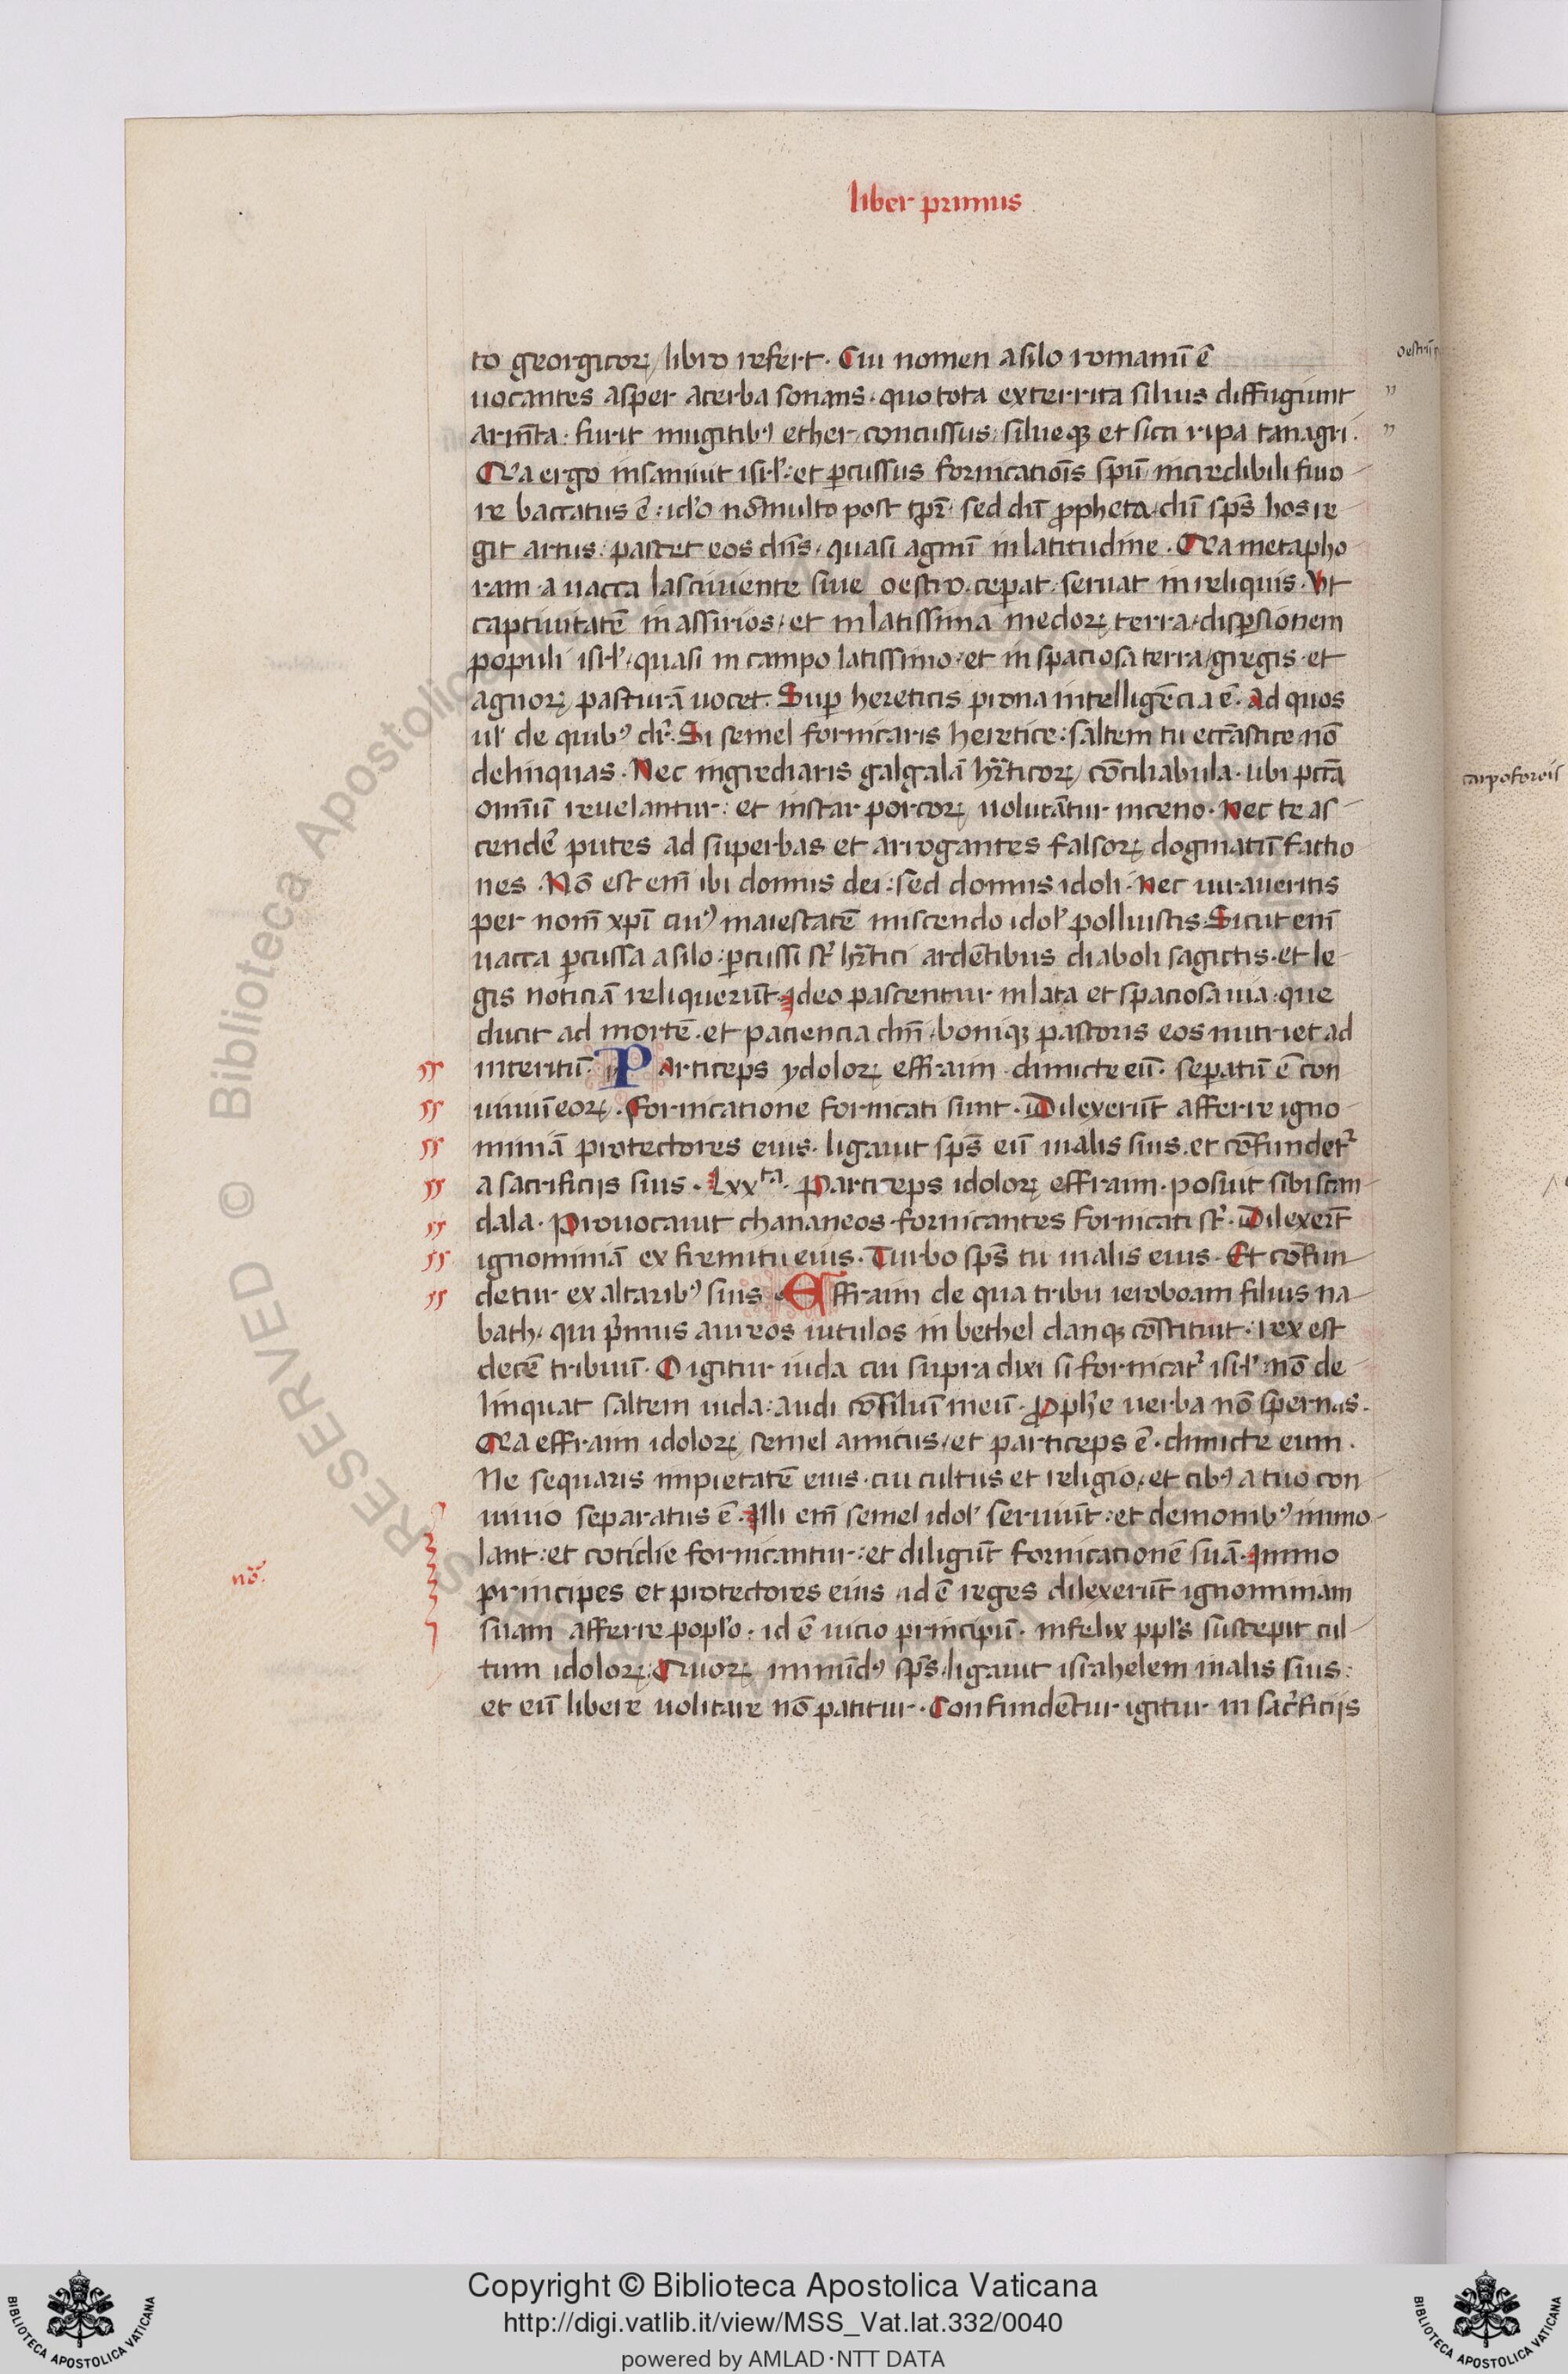 liber primus
to georgicoꝝ libro refert. Cui nomen asilo romanū ē
uocantes asper acerba sonans. quo tota exterrita siluis diffugiunt
armēta. furit mugitibꝰ ether concussus, silueqꝫ et sicci ripa tanagri.
Qꝛa ergo insaniuit isrl̓: et ꝑcussus fornicatiōīs spū incredibili furo
re baccatus ē: id̓o nō multo post tꝑr̄ sed dū ꝓpheta, dū sps̄ hos re
git artus: pascet eos dn̄s, quasi agnū in latitudine. Qꝛa metapho
ram a uacca lasciuiente siue oestro. ceperat. seruat in reliquis. Vt
captiuitatē in assirios, et in latissima medoꝝ terra, disꝑsionem
populi isrl̓, quasi in campo latissimo, et in spaciosa terra, gregis et
agnoꝝ pasturā uocet. Suꝑ hereticis prona intelligēcia ē. Ad quos
ul̓ de quibꝰ dr̄. Si semel fornicaris heretice: saltem tu eccl̄astice nō
delinquas. Nec ingrediaris galgalā hr̄ticoꝝ cōciliabula. ubi pctā
omīū reuelantur: et instar porcoꝝ uolutātur in ceno. Nec te as
cendē putes ad superbas et arrogantes falsoꝝ dogmatū factio
nes. Nō est em̄ ibi domus dei: sed domus idoli. Nec iuraueritis
per nom̄ xpī cuiꝰ maiestatē miscendo idol̓ polluistis. Sicut em̄
uacca ꝑcussa asilo: ꝑcussi st̄ hr̄tici ardētibus diaboli sagictis. et le
gis noticiā reliquerūt. Ideo pascentur in lata et spaciosa uia: que
ducit ad mortē. et paciencia dn̄i boniqꝫ pastoris eos nutriet ad
interitū. Particeps ydoloꝝ effraim dimicte eū. seꝑatū ē con
uiuiū eoꝝ. Fornicatione fornicati sunt. Dilexerūt afferre igno
miniā protectores eius. ligauit sps̄ eū in alis suis. et cōfundet᷑
a sacrificijs suis. Lxxᵗᵃ. Particeps idoloꝝ effraim. posuit sibi scan
dala. Prouocauit chananeos fornicantes fornicati st̄. Dilexerūt
ignominiā ex fremitu eius. Turbo sps̄ tu in alis eius. Et cōfun
detur ex altaribꝰ suis. Effraim de qua tribu ieroboam filius na
bath, qui pͥmus aureos uitulos in bethel danqꝫ cōstituit. rex est
decē tribuū. O igitur iuda cui supra dixi si fornicat᷑ isrl̓ nō de
linquat saltem iuda: audi cōsiliū meū. Ꝓphe uerba nō spernas.
Qꝛa effraim idoloꝝ semel amicus, et particeps ē. dimicte eum.
Ne sequaris impietatē eius. cui cultus et religio, et cibꝰ a tuo con
uiuio separatus ē. Illi em̄ semel idol̓ seruiūt: et demonibꝰ immo
lant: et cotidie fornicantur: et diligūt fornicationē suā. Immo
principes et protectores eius id ē reges dilexerūt ignominiam
suam afferre popl̓o. id ē uicio principū. infelix ppl̓s suscepit cul
tum idoloꝝ. Quoꝝ immūdꝰ sps̄ ligauit israhelem in alis suis:
et eū libere uolitare nō patitur. Confundētur igitur in sacͥficijs
nō.
carpoforois
RESERVED © Biblioteca Apostolica
Copyright © Biblioteca Apostolica Vaticana
http://digi.vatlib.it/view/MSS_Vat.lat.332/0040
powered by AMLAD·NTT DATA
BIBLIOTECA APOSTOLICA VATICANA
BIBLIOTECA APOSTOLICA VATICANA